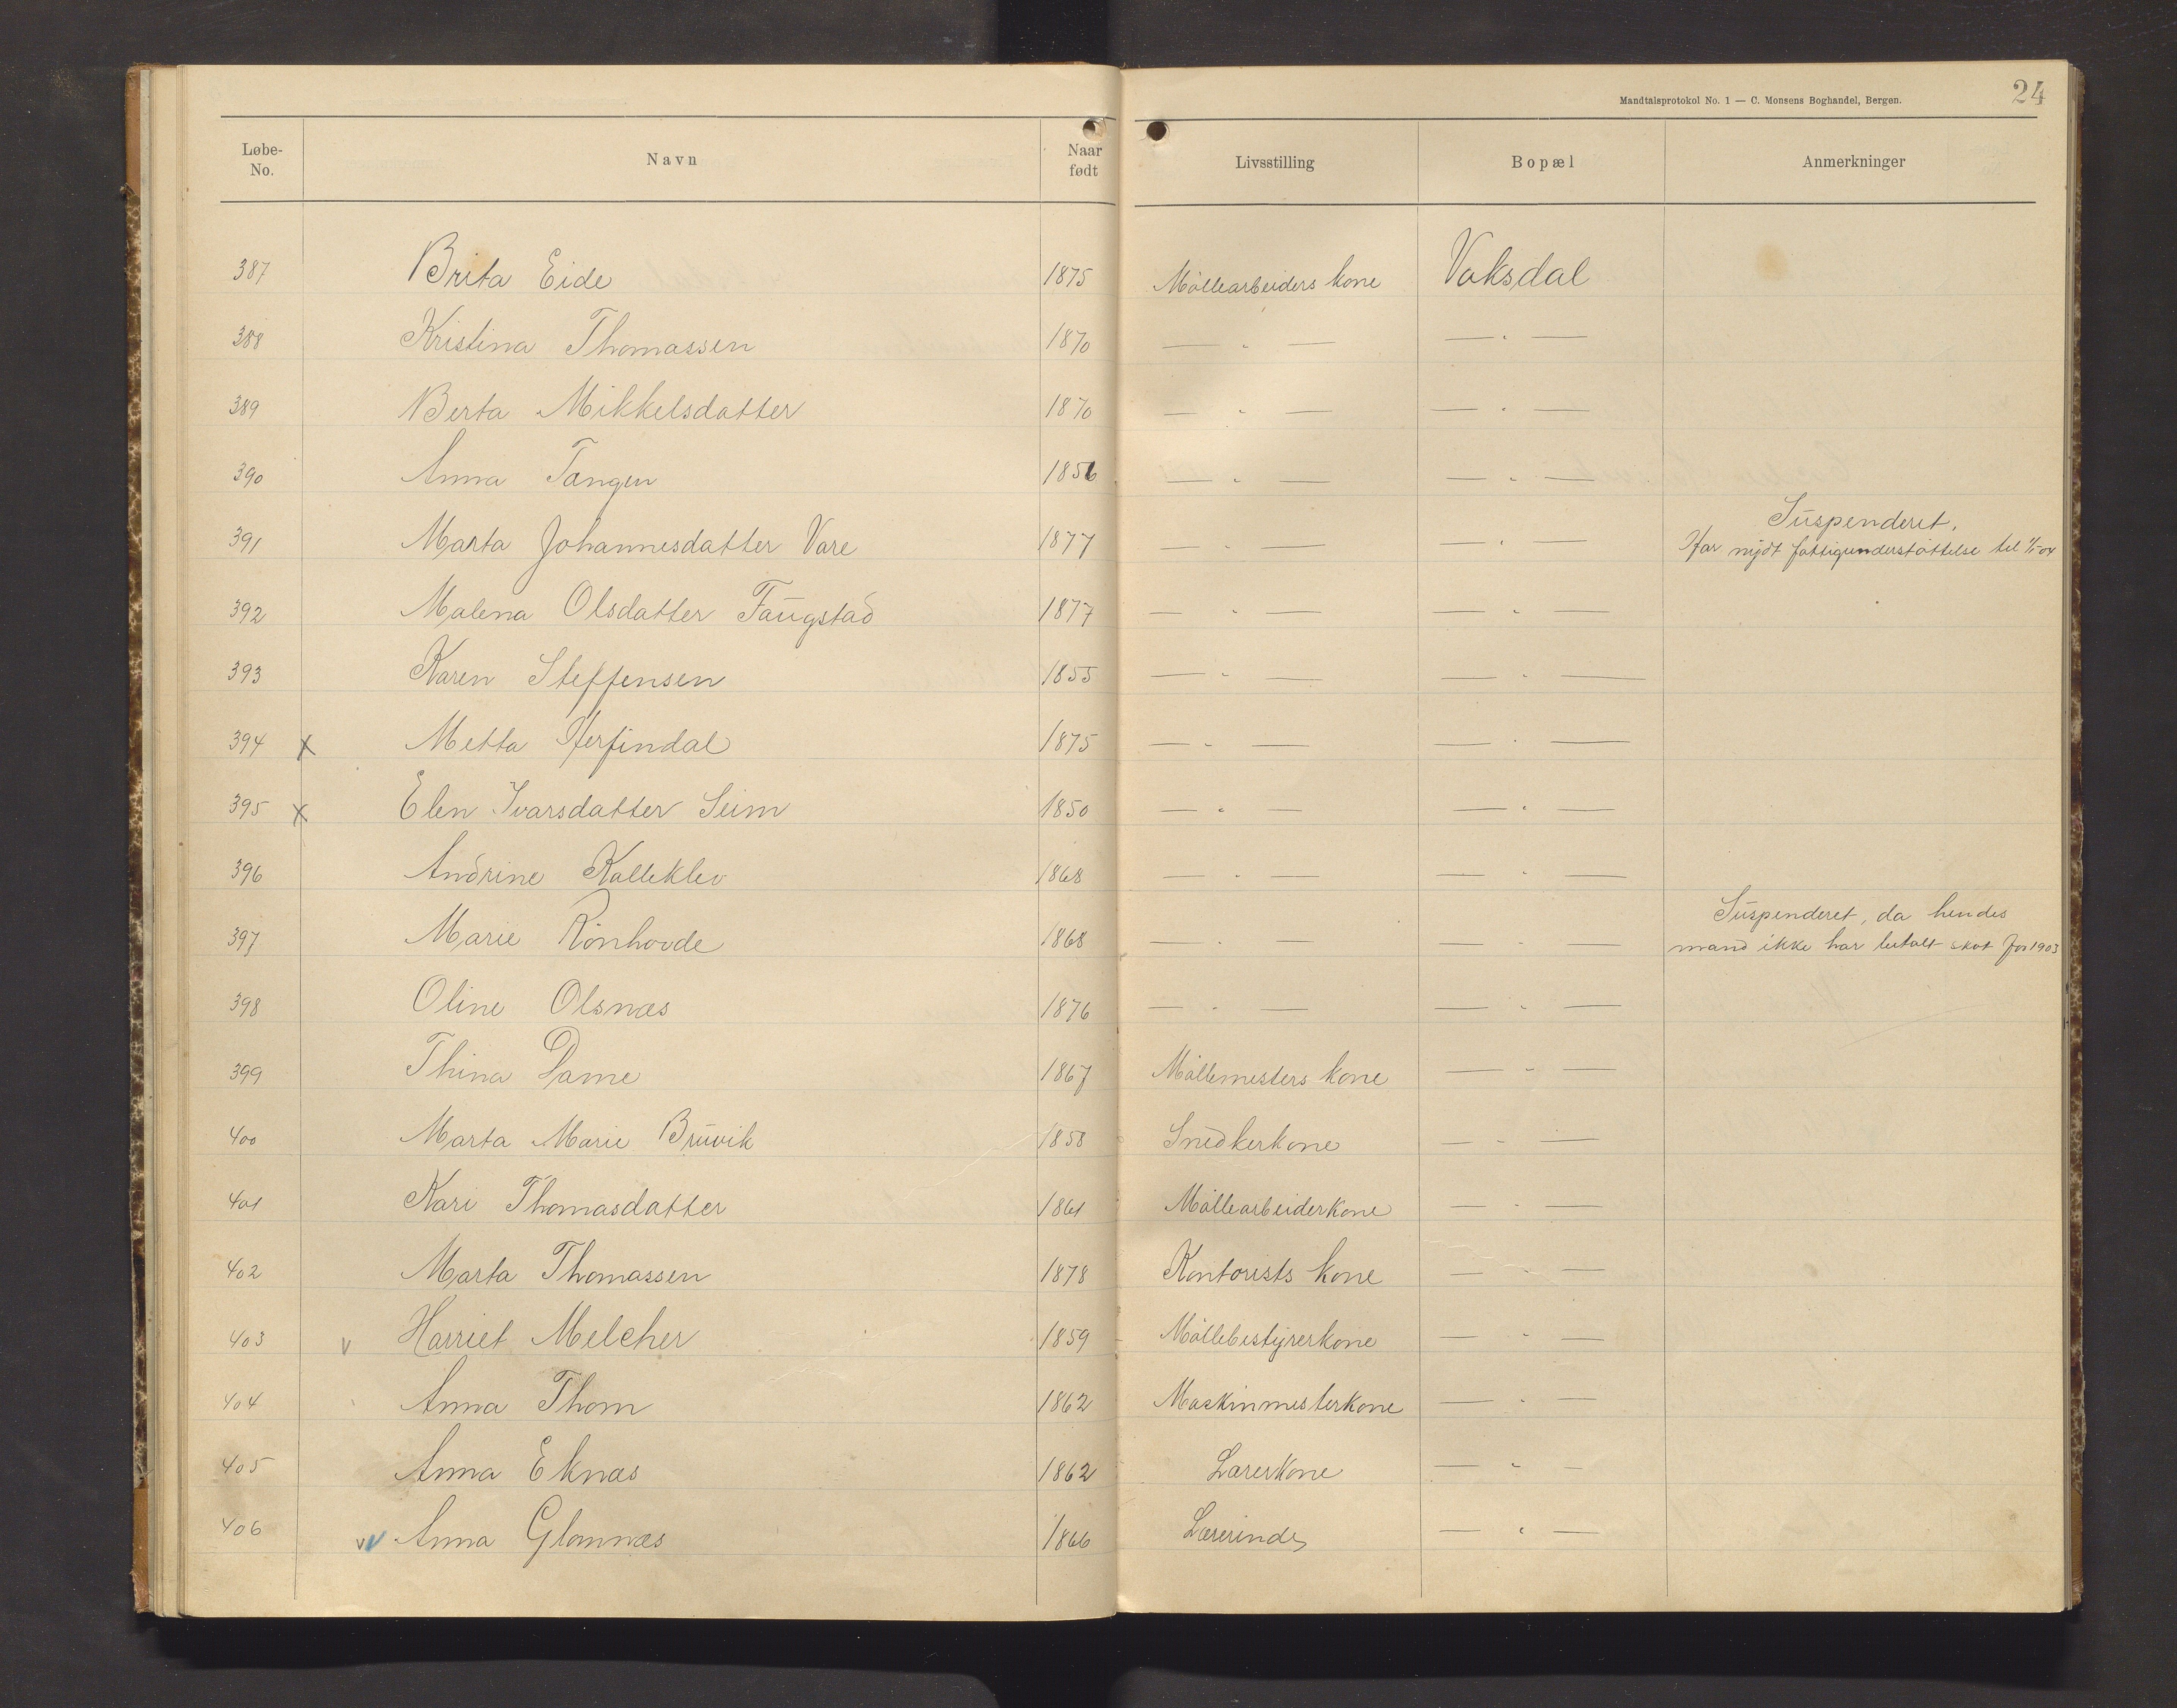 Mandtalsprotokol No. 1 — C. Monsens Boghandel, Bergen.
24
Løbe-No. Navn Naar født Livsstilling Bopæl Anmerkninger
387 Brita Eide 1875 Möllearbeiders kone Vaksdal
388 Kristina Thomassen 1870 — " — — " —
389 Berta Mikkelsdatter 1870 — " — — " —
390 Anna Tangen 1856 — " — — " —
Suspenderet.
391 Marta Johannesdatter Vare 1877 — " — — " — Har nydt fattigunderstöttelse til 1/1-04
392 Malena Olsdatter Faugstad 1877 — " — — " —
393 Karen Steffensen 1855 — " — — " —
394 x Metta Herfindal 1875 — " — — " —
395 x Elen Ivarsdatter Seim 1850 — " — — " —
396 Andrine Kalleklev 1868 — " — — " —
Suspenderet, da hendes
397 Marie Rönhovde 1868 — " — — " — mand ikke har betalt skat for 1903
398 Oline Olsnæs 1876 — " — — " —
399 Thina Dame 1867 Möllemesters kone — " —
400 Marta Marie Bruvik 1858 Snedkerkone — " —
401 Kari Thomasdatter 1861 Möllearbeiderkone — " —
402 Marta Thomassen 1878 Kontorists kone — " —
403 v Harriet Melcher 1859 Möllebestyrerkone — " —
404 Anna Thom 1862 Maskinmesterkone — " —
405 Anna Eknæs 1862 Lærerkone — " —
406 vv Anna Glannæs 1866 Lærerinde — " —